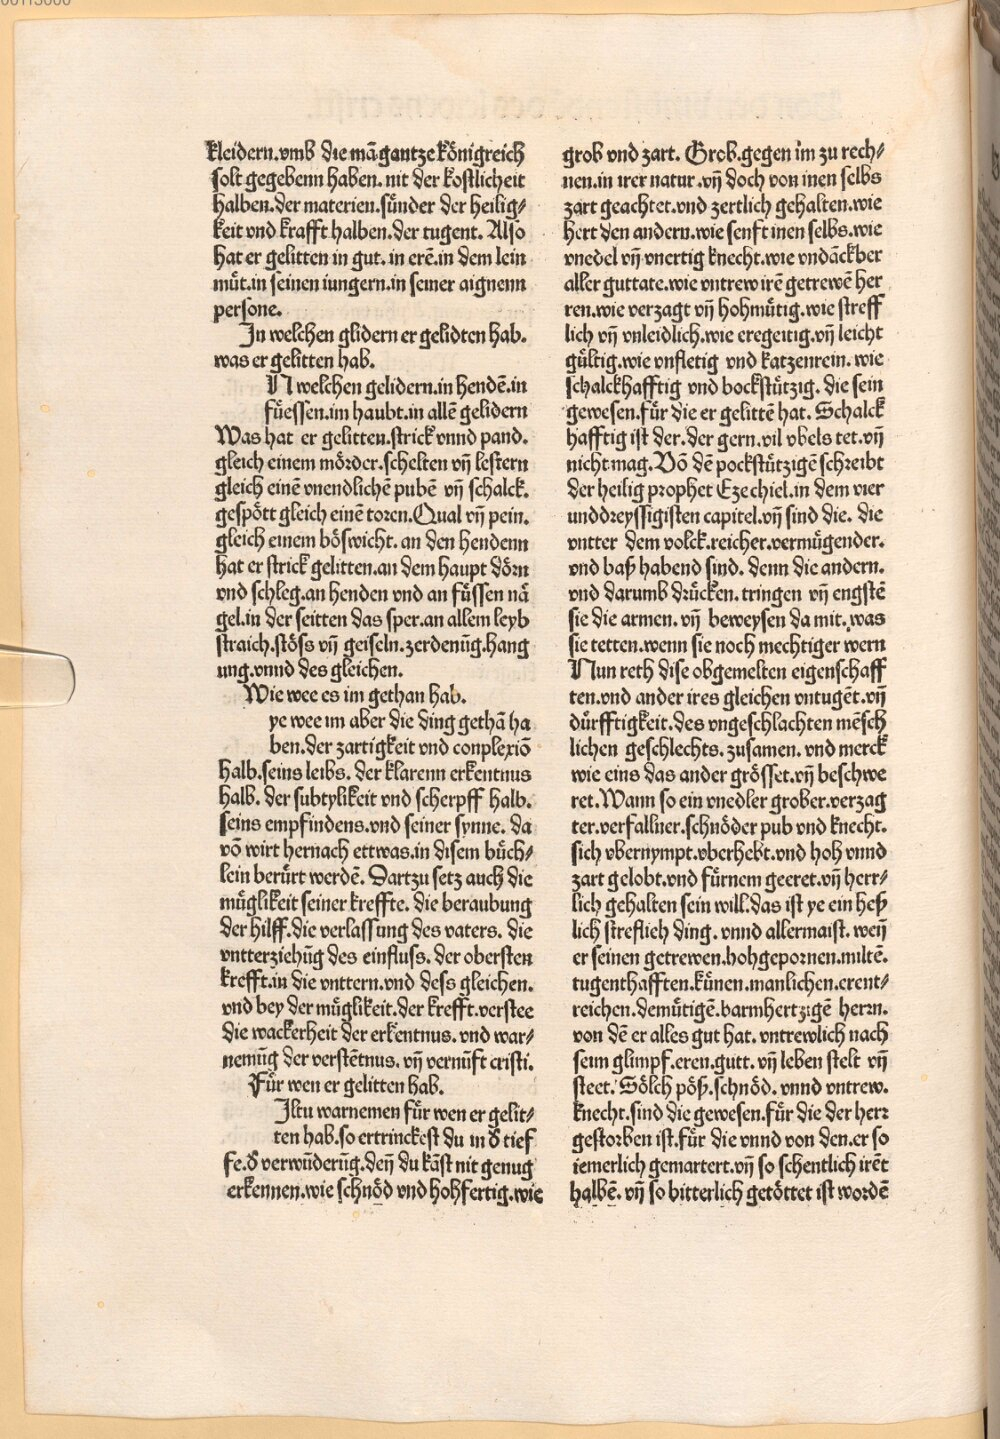 kleidern.vmb die mā gantze königreich
solt gegebenn haben. nit der kostlicheit
halben.der materien.sůnder der heilig⸗
keit vnd krafft halben.der tugent. Also
hat er gelitten in gut. in erē.in dem lein
můt.in seinen iungern.in seiner aignenn
persone.
In welchen glidern er gelidten hab.
was er gelitten hab.
IN welchen gelidern.in hendē.in
fůessen.im haubt.in allē gelidern
Was hat er gelitten.strick vnnd pand.
gleich einem mörder.schelten vn̄ lestern
gleich einē vnendlichē pubē vn̄ schalck.
gespött gleich einē toren.Qual vn̄ pein.
gleich einem böswicht. an den hendenn
hat er strick gelitten.an dem haupt dörn
vnd schleg.an henden vnd an fůssen nä
gel.in der seitten das sper.an allem leyb
straich.stöss vn̄ geiseln.zerdenūg.hang
ung.vnnd des gleichen.
Wie wee es im gethan hab.
ye wee im aber die ding gethā ha
ben.der zartigkeit vnd conplexiō
halb.seins leibs. der klarenn erkentnus
halb. der subtylikeit vnd scherpff halb.
seins empfindens.vnd seiner synne. da
vō wirt hernach ettwas.in disem bůch⸗
lein berůrt werdē. Dartzu setz auch die
můglikeit seiner kreffte. die beraubung
der hilff.die verlassung des vaters. die
vntterziehūg des einfluss. der obersten
krefft.in die vnttern.vnd dess gleichen.
vnd bey der můglikeit.der krefft.verstee
die wackerheit der erkentnus. vnd war⸗
nemūg der verstētnus. vn̄ vernůft cristi.
Fůr wen er gelitten hab.
Iltu warnemen fůr wen er gelit⸗
ten hab.so ertrinckest du in d̄ tief
fe.d̄ verwūderūg.den̄ du kāst nit genug
erkennen.wie schnöd vnd hohfertig.wie
grob vnd zart. Grob.gegen im zu rech⸗
nen.in irer natur.vn̄ doch von inen selbs
zart geachtet.vnd zertlich gehalten.wie
hert den andern.wie senft inen selbs.wie
vnedel vn̄ vnertig knecht.wie vndāckber
aller guttate.wie vntrew irē getrewē her
ren.wie verzagt vn̄ hohmůtig.wie streff
lich vn̄ vnleidlich.wie eregeitig.vn̄ leicht
gůltig.wie vnfletig vnd katzenrein. wie
schalckhafftig vnd bockstůtzig. die sein
gewesen.fůr die er gelittē hat. Schalck
hafftig ist der.der gern.vil vbels tet.vn̄
nicht mag.Vō dē pockstůtzigē schreibt
der heilig prophet Ezechiel.in dem vier
unddreyssigisten capitel.vn̄ sind die. die
vntter dem volck.reicher.vermůgender.
vnd baß habend sind. denn die andern.
vnd darumb drůcken. tringen vn̄ engstē
sie die armen. vn̄ beweysen da mit. was
sie tetten.wenn sie noch mechtiger wern
Nun reth dise obgemelten eigenschaff
ten.vnd ander ires gleichen vntugēt.vn̄
důrfftigkeit.des vngeschlachten mēsch
lichen geschlechts. zusamen. vnd merck
wie eins das ander grösset.vn̄ beschwe
ret.Wann so ein vnedler grober.verzag
ter.verfallner.schnöder pub vnd knecht.
sich vbernympt.vberhebt.vnd hoh vnnd
zart gelobt.vnd fůrnem geeret.vn̄ herr⸗
lich gehalten sein will.das ist ye ein heß
lich streflich ding. vnnd allermaist. wen̄
er seinen getrewen.hohgepornen.miltē.
tugenthafften.kůnen.manlichen.erent⸗
reichen.demůtigē.barmhertzigē herrn.
von dē er alles gut hat. vntrewlich nach
seim glimpf.eren.gutt. vn̄ leben stelt vn̄
steet. Sölch pöß.schnöd. vnnd vntrew.
knecht.sind die gewesen.fůr die der herr
gestorben ist.fůr die vnnd von den.er so
iemerlich gemartert.vn̄ so schentlich irēt
halbē. vn̄ so bitterlich getöttet ist wordē